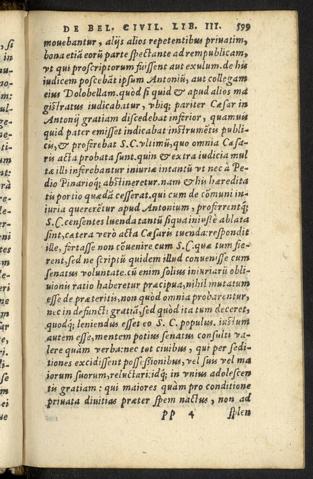 DE BEL. CIVIL. LIB. III. 599
mouebantur, alijs alios repetentibus priuatim,
bona etiã eorũ parte spectante ad rempublicam,
vt qui proscriptorum fuissent aut exulum. de his
iudicem poscebãt ipsum Antoniũ, aut collegam
eius Dolobellam. quòd si quid & apud alios ma
gistratus iudicabatur, vbiq; pariter Cæsar in
Antonij gratiam discedebat inferior, quamuis
quid pater emisset indicabat instrumẽtis publi-
cis, & proferebat S.C. vltimũ, quo omnia Cæsa-
ris acta probata sunt. quin & extra iudicia mul
tæ illi inferobantur iniuriæ intantũ vt nec à Pe-
dio Pinarioq; abstineretur. nam & his haredita
tis portio quædã cesserat. qui cum de cõmuni in-
iuria quererẽtur apud Antonium, proferrentq;
S.C. censentes luenda tantũ si qua iniustè ablata
sint, cætera verò acta Cæsaris tuenda: respondit
ille, fortasse non cõuenire cum S.C. quæ tum fie-
rent, sed ne scriptũ quidem illud conuenisse cum
senatus voluntate. cũ enim solius iniuriarũ obli-
uionis ratio haberetur præcipua, nihil mutatum
esse de præteritis, non quòd omnia probarentur,
nec in defuncti gratiã, sed quòd ita tum deceret,
quodq; leniendus esset eo S.C. populus. iustum
autem esse, mentem potius senatus consulti va-
lere quàm verba: nec tot ciuibus, qui per sedi-
tiones excidissent possessionibus, vel suis vel ma
iorum suorum, reluctari: idq; in vnius adolescen
tis gratiam: qui maiores quàm pro conditione
priuata diuitias præter spem nactus, non ad
PP 4 splen